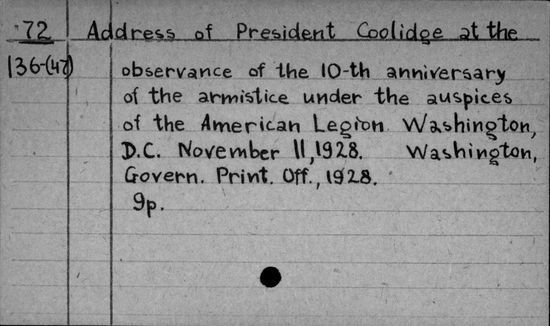 72 Address of President Coolidge at the
136-(47) observance of the 10-th anniversary
of the armistice under the auspices
of the American Legion. Washington,
D.C. November 11, 1928. Washington,
Govern. Print. Off., 1928.
9p.